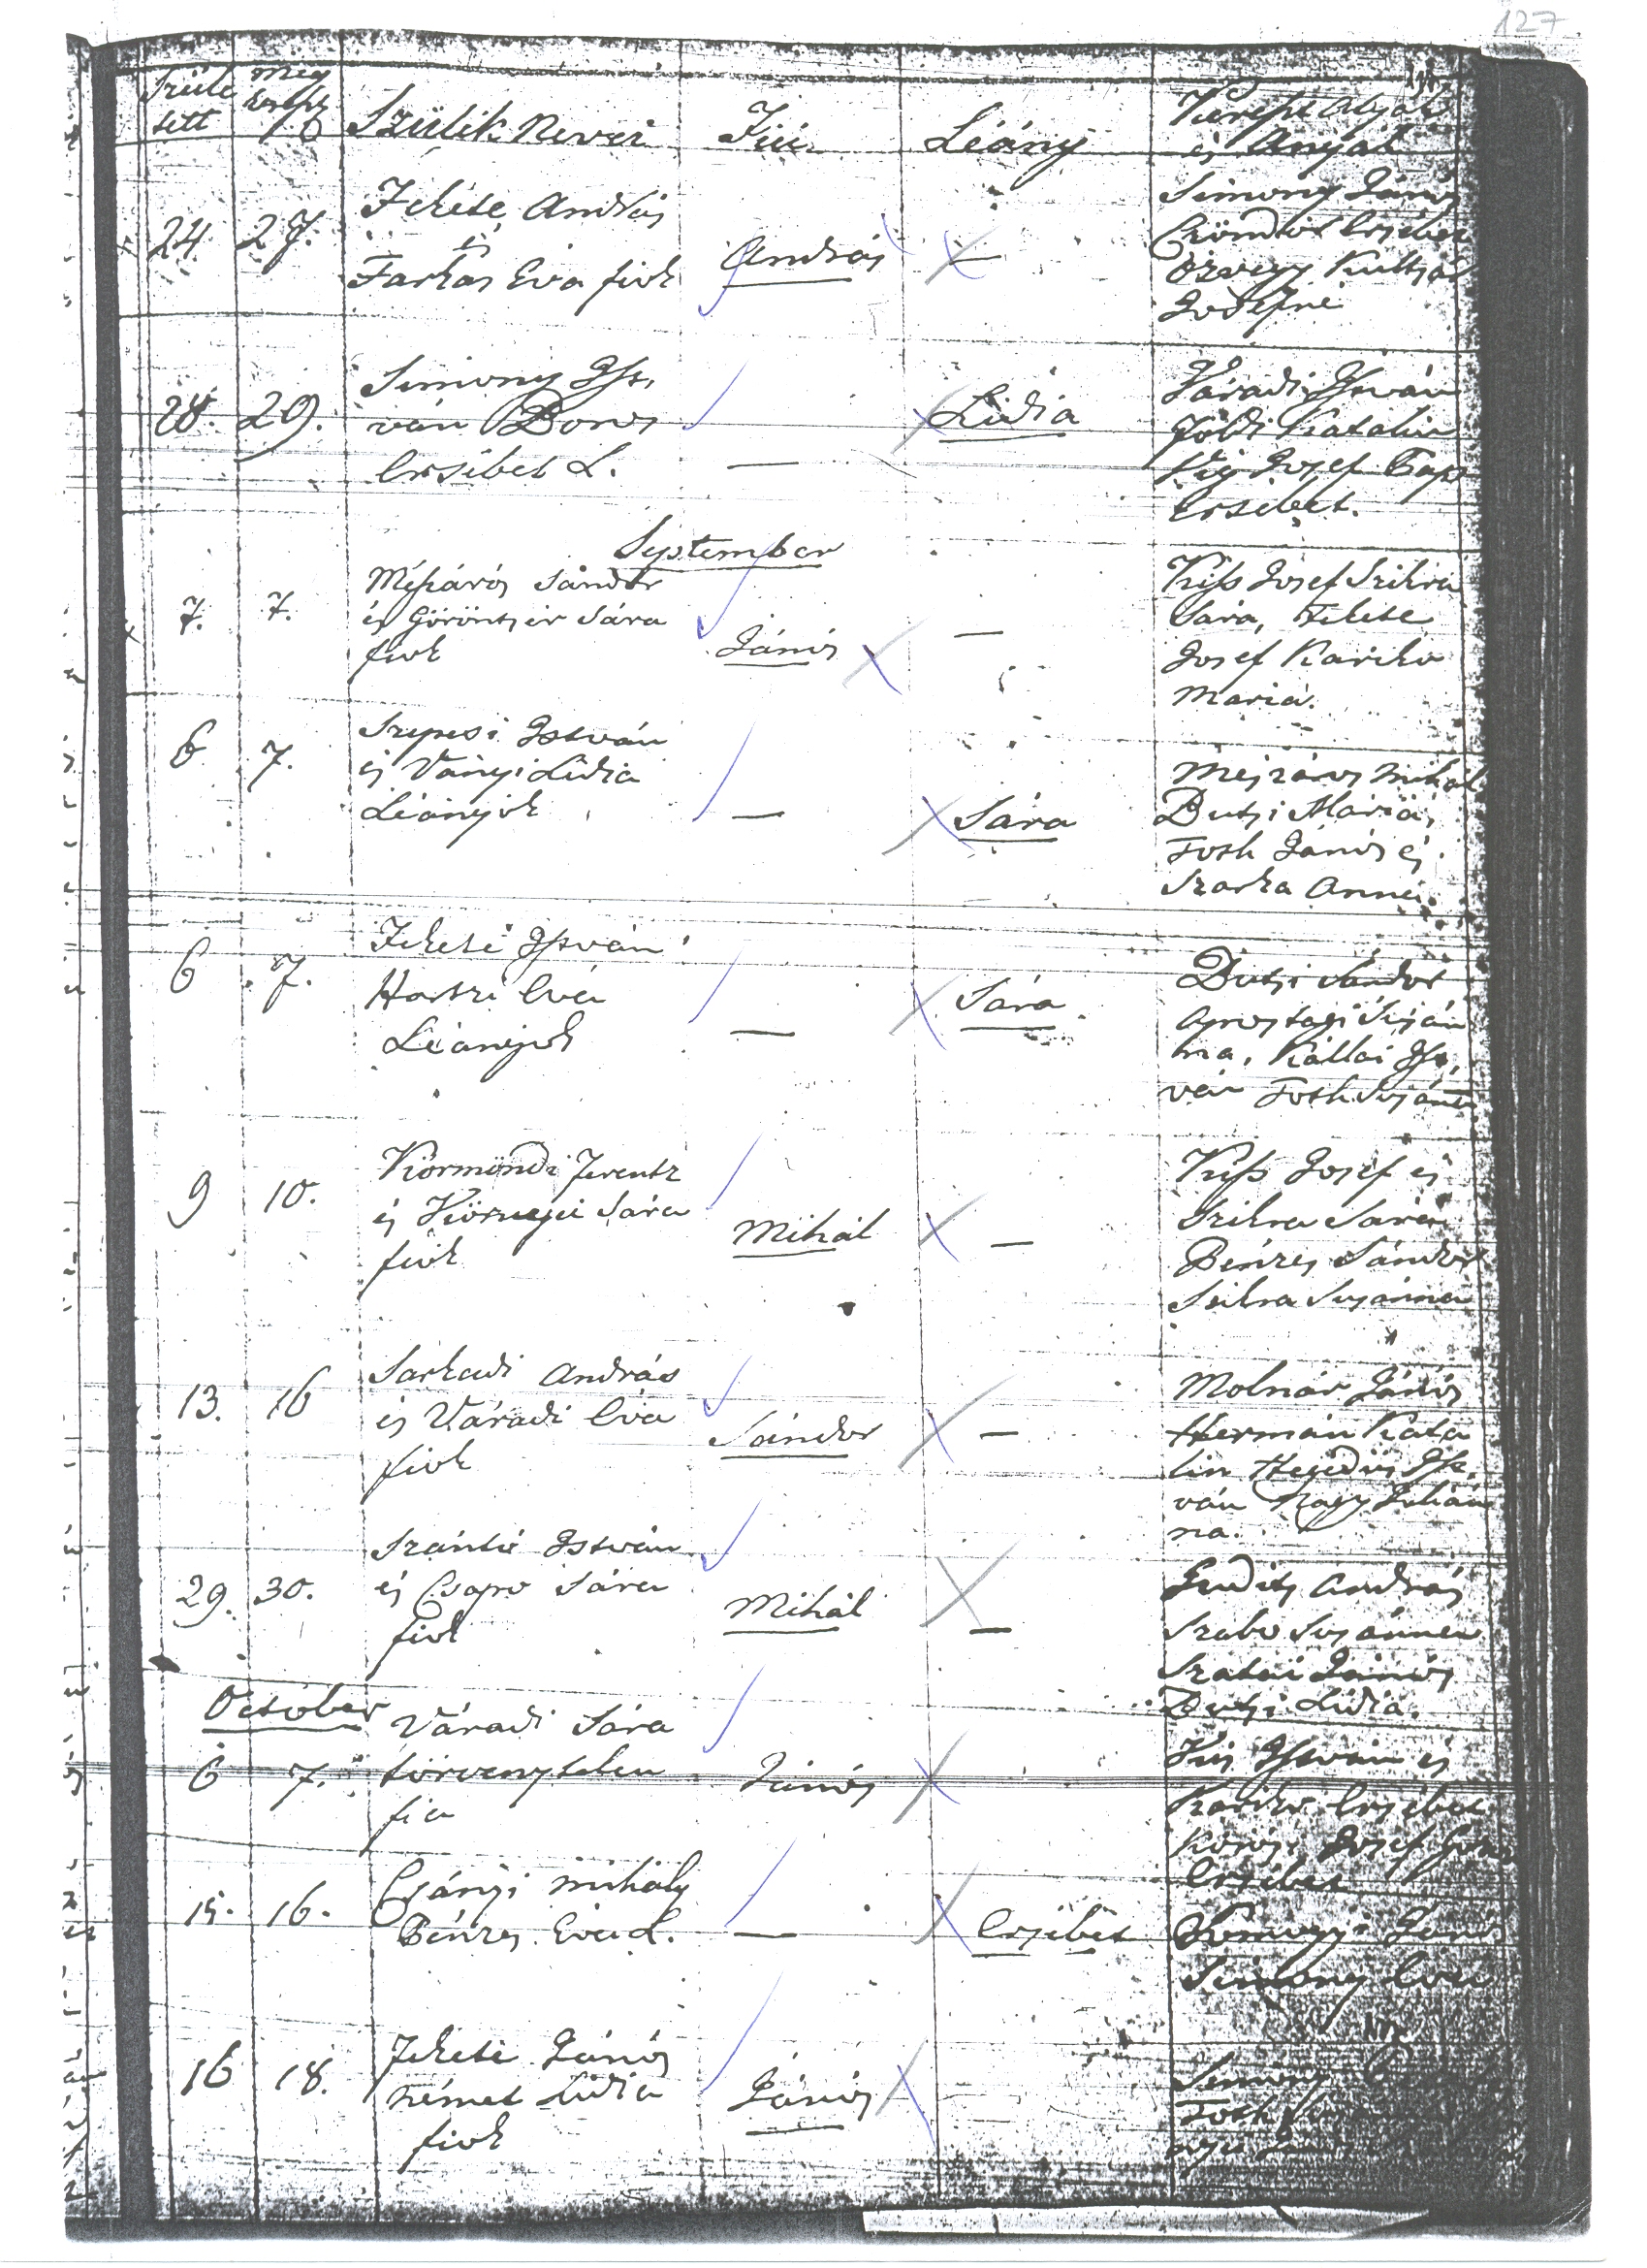 127
Szüle Meg
tett
Szülék Nevei Fiú Leány Kereszt Atyák
és Anyák
24. 27. Fekete András
és
Farkas Eva fiok
András —
Simony János
Csöndör Ersébet
özvegy
Josefné
28. 29. Simony Ist,
ván Boros
Ersébet L.
— Lidia
Váradi István
Földi Katalin
Vig Josef Pap
Ersebet.
September
7. 7. Mészáros Sándor
és Göröntsér Sára
fiok
János —
Kiss Josef Szikra
Sára, Fekete
Josef Karika
Mária.
6 7. Szepesi István
és Ványi Lidia
Léányok
— Sára
Mészáros Mihál
Butsi Mária,
Toth János és
Szarka Anna.
6 7. Fekete István
Hartzi Eva
Léanyok
— Sára
Butsi Sándor
Aprostagi Susán
na, Kállai Ist,
ván Toth Susánn
9 10. Körmöndi Ferentz
és Környei Sára
fiok
Mihál —
Kiss Josef és
Szikra Sára
Bénzes Sándor
Szikra Susánna
13. 16 Sarkadi András
és Váradi Eva
fiok
Sándor —
Molnár János
Hermán Kata
lin Hegedüs Ist,
ván Nagy Julián
na.
29. 30. Szántó István
és Csapo Sára
fiok
Mihál —
András
Szabo Susánna
Szatai János
Butsi Lidia.
October
6 7. Váradi Sára
törvenytelen
fia
János
István és
Ersébet
Josef
Ersébet
15. 16. Csányi Mihály
Bénzes Eva L.
— Ersébet
Somogyi János
Simony Eva
16 18. Fekete János
Német Lidia
fiok
János
Simony
Toth